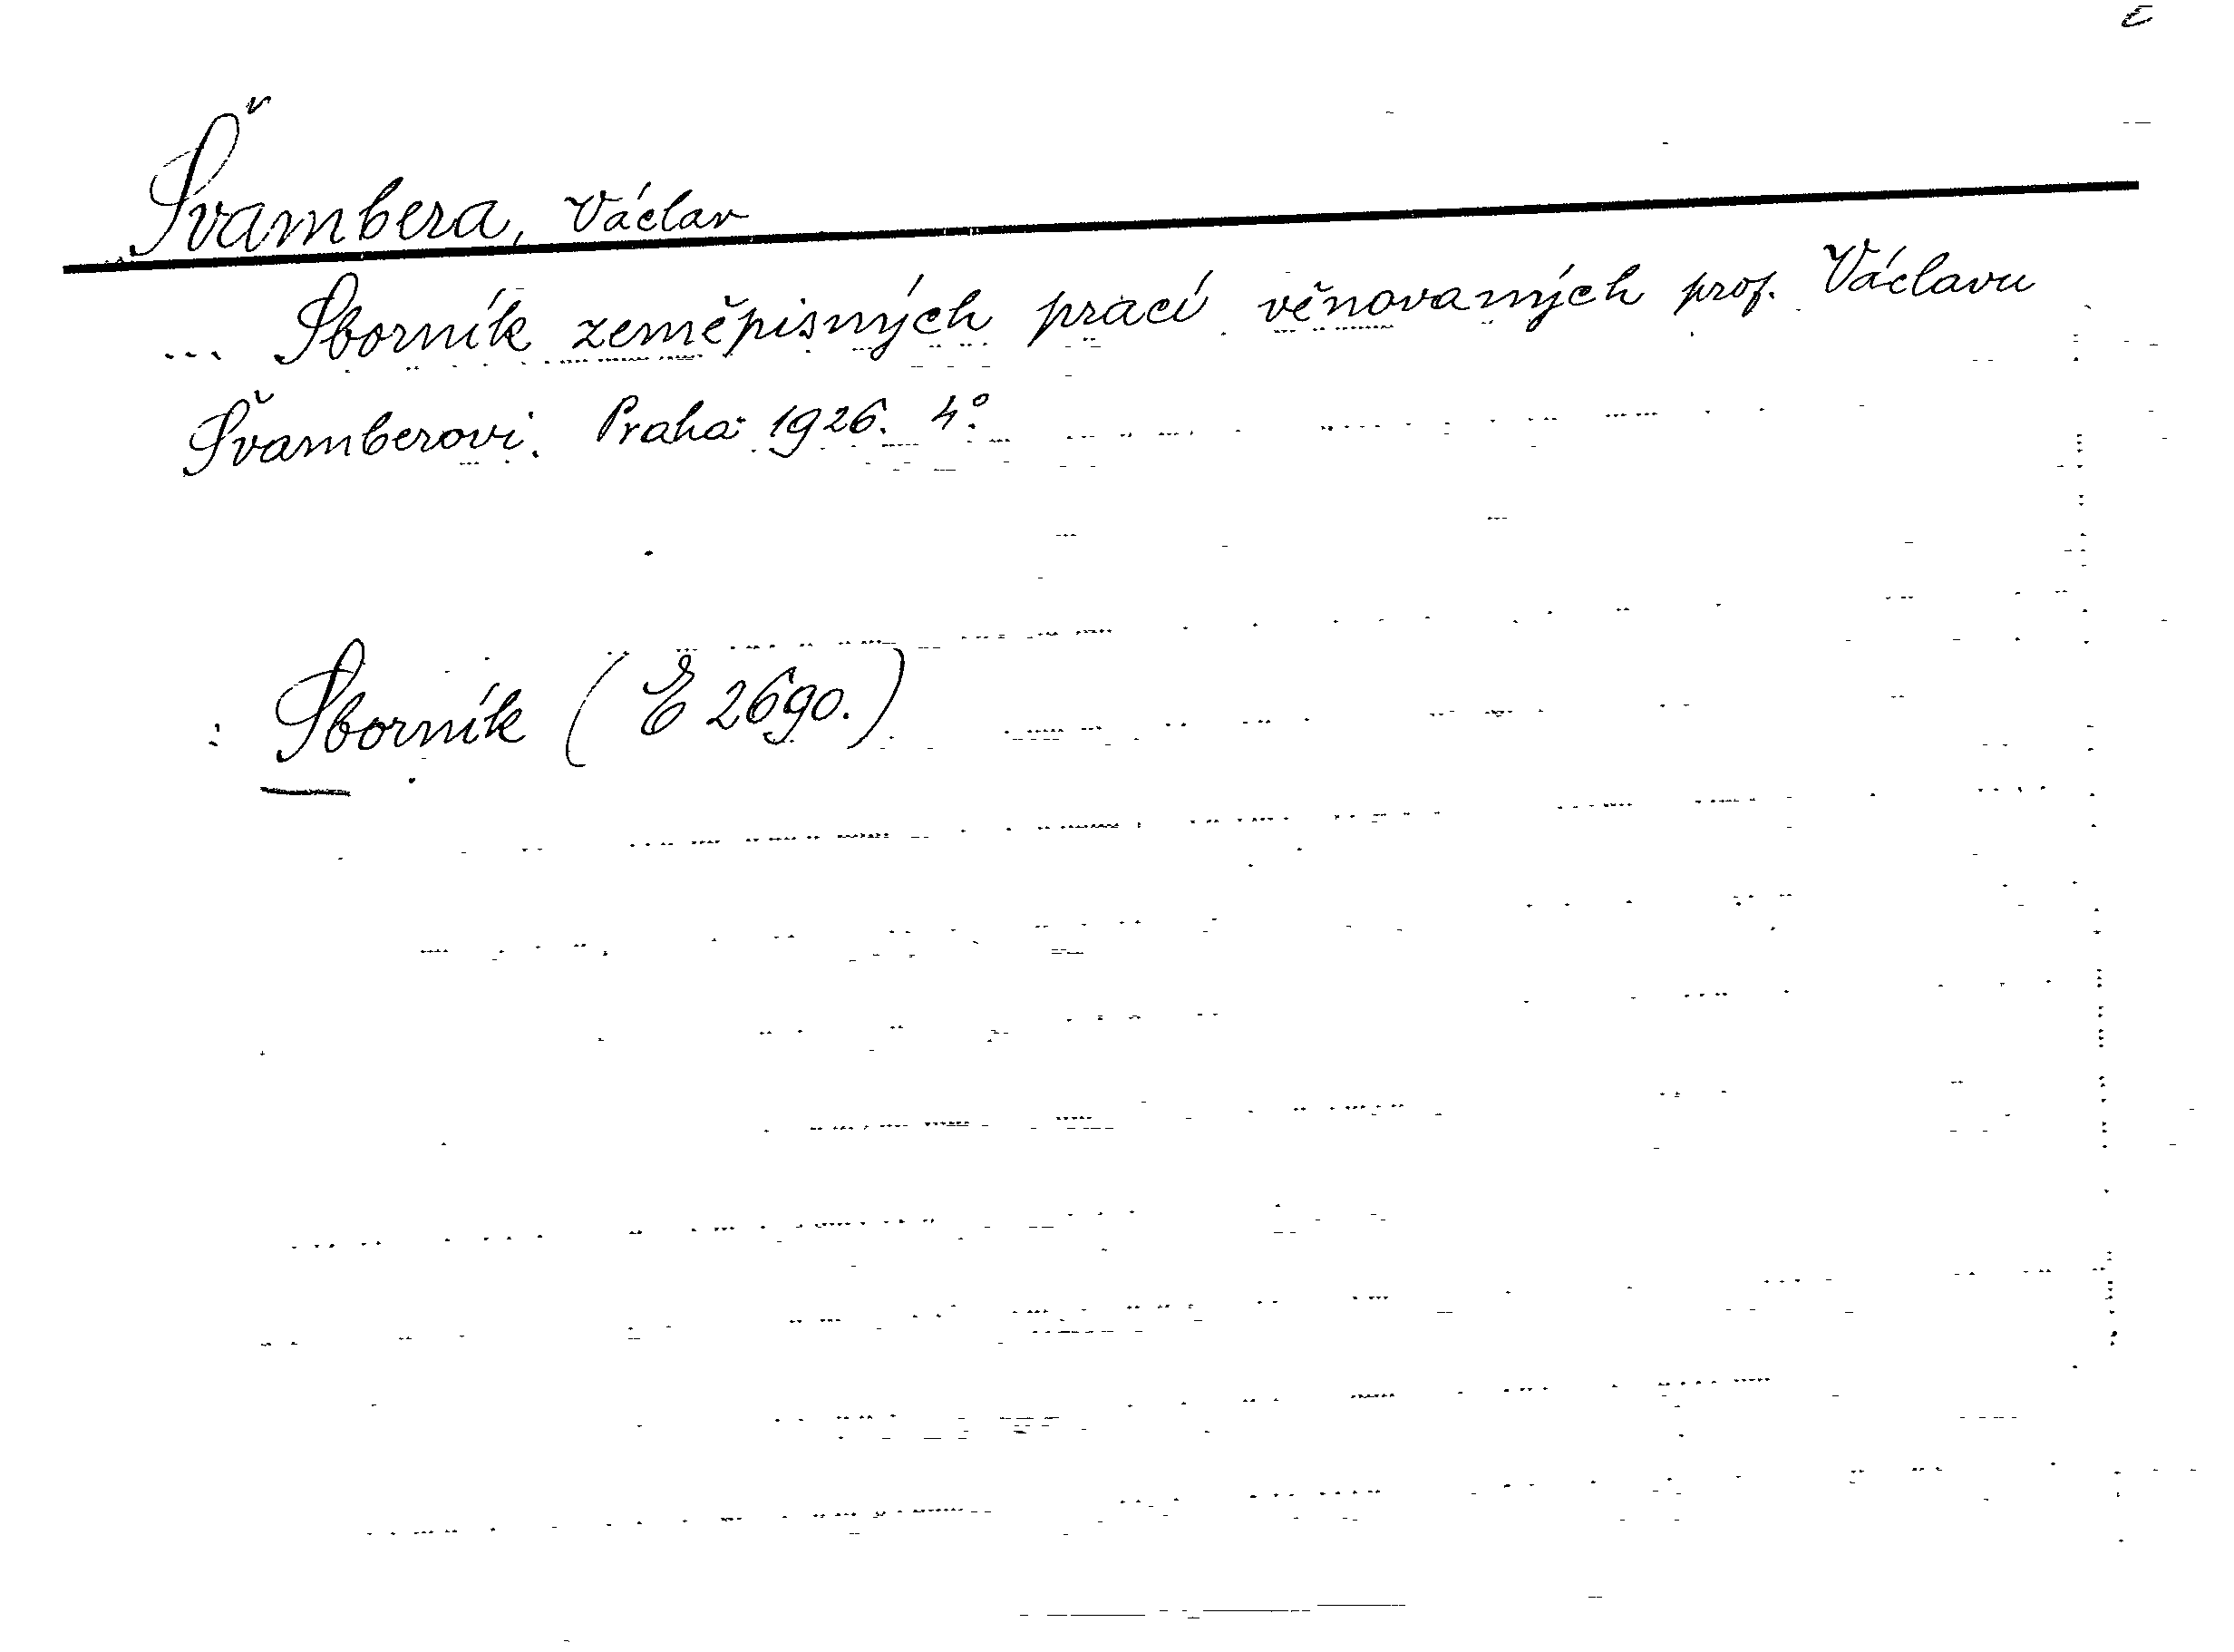 Švambera, Václav
... Sborník zeměpisných prací věnovaných prof. Václavu
Švamberovi. Praha 1926. 4°.
: Sborník (E 2690.)